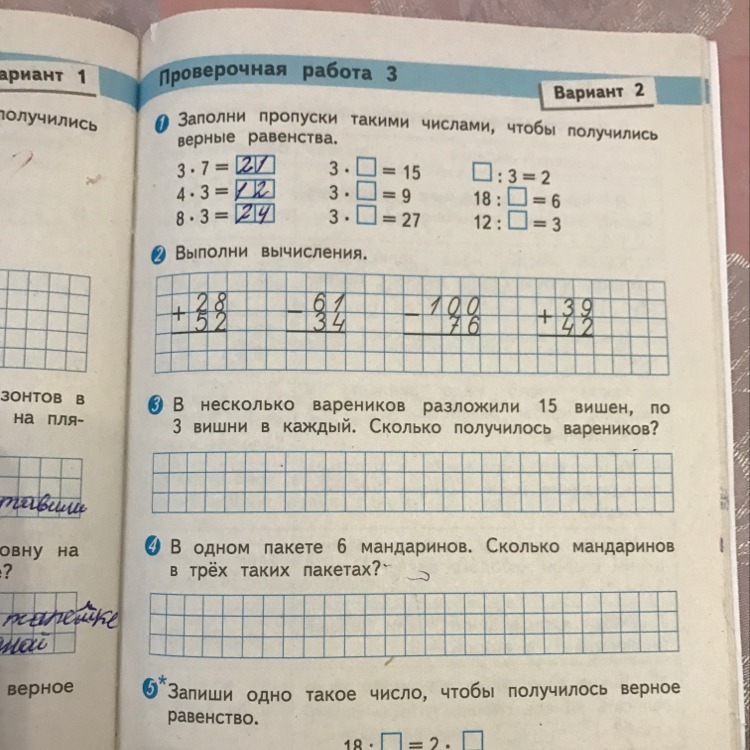 ариант 1
получились
зонтов в
на пля-
тавили
овну на
е?
тарелке
дной
верное
Проверочная работа 3
Вариант 2
1 Заполни пропуски такими числами, чтобы получились
верные равенства.
3 · 7 = 21 3 · □ = 15 □ : 3 = 2
4 · 3 = 12 3 · □ = 9 18 : □ = 6
8 · 3 = 24 3 · □ = 27 12 : □ = 3
2 Выполни вычисления.
+ 28 − 61 − 100 + 39
52 34 76 42
3 В несколько вареников разложили 15 вишен, по
3 вишни в каждый. Сколько получилось вареников?
4 В одном пакете 6 мандаринов. Сколько мандаринов
в трёх таких пакетах?
5* Запиши одно такое число, чтобы получилось верное
равенство.
18 · □ = 2 · □